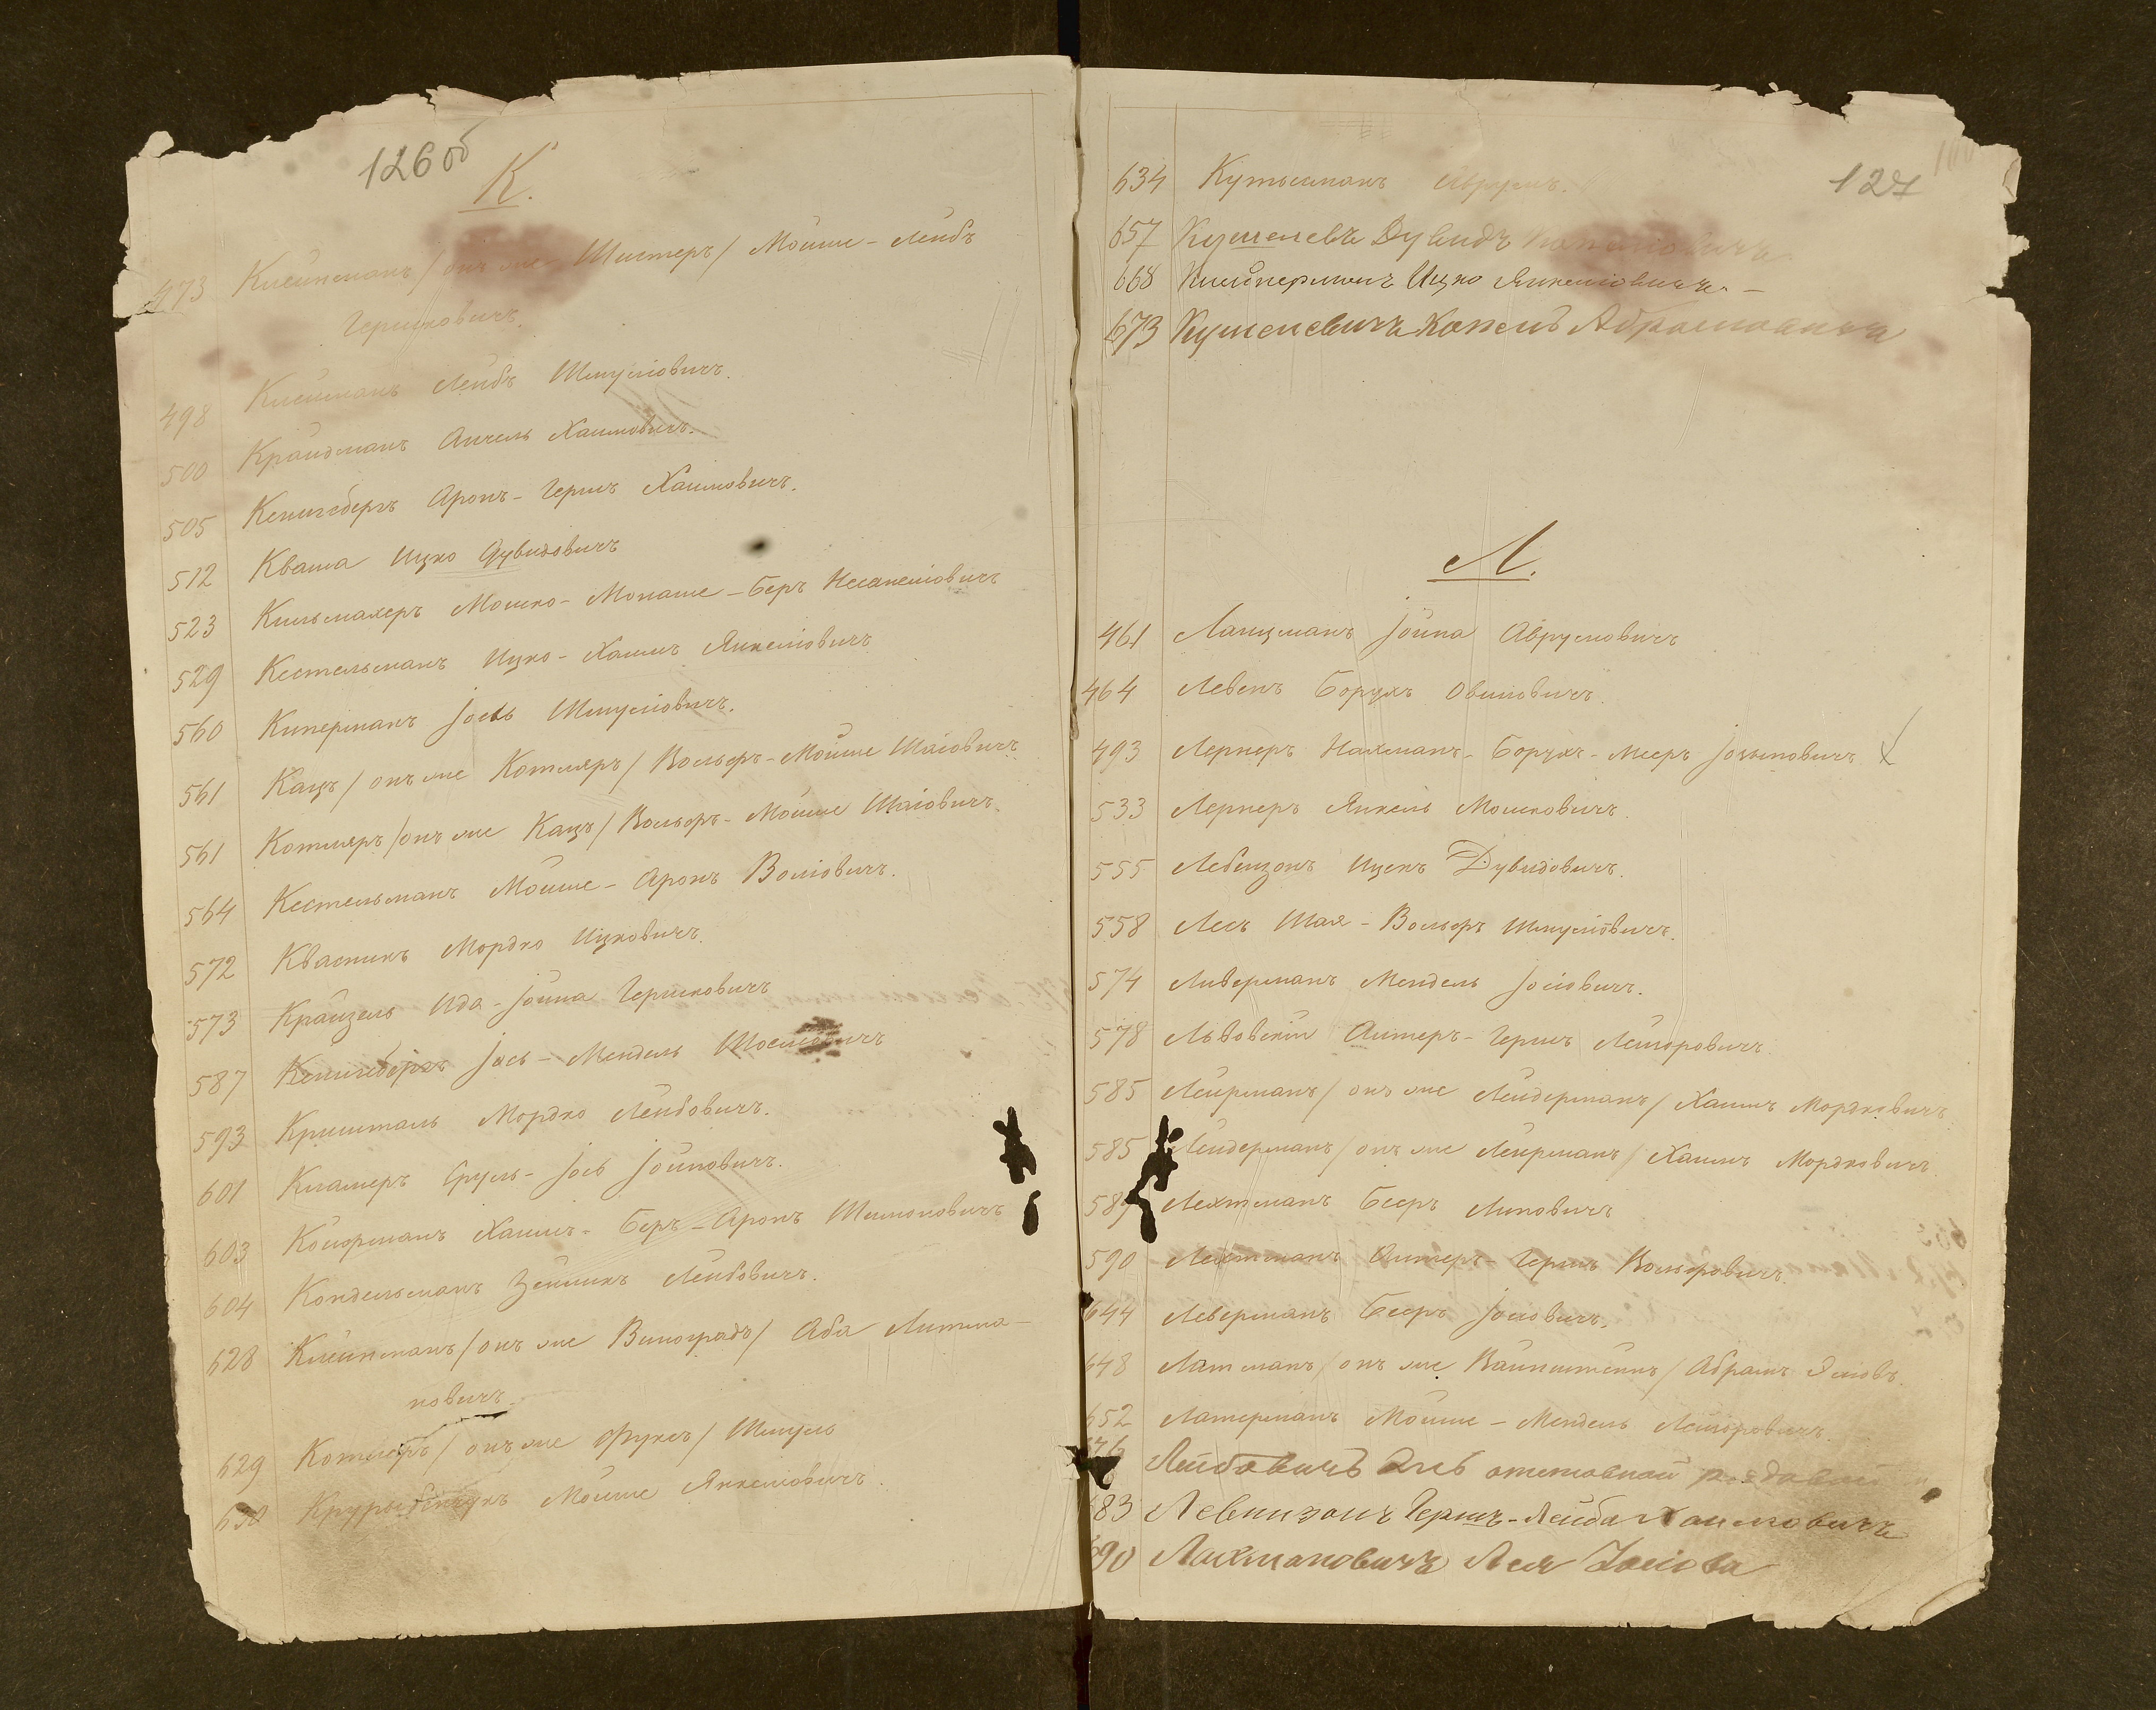 126 об
К.
473 Клейнманъ /онъ же Шистеръ/ Мойше-Лейбъ
Гершковичъ.
498 Клейманъ Лейбъ Шмулiовичъ.
500 Крайдманъ Анчель Хаимовичъ.
505 Кенигсбергъ Аронъ-Гершъ Хаимовичъ.
512 Кваша Ицко Дувидовичъ
523 Кильмахеръ Мошко-Монаше-Беръ
529 Кестельманъ Ицко-Хаимъ Янкелiовичъ
560 Киперманъ Jось Шмулiовичъ.
561 Кацъ /онъ же Котляръ/ Вольфъ-Мойше Шаiовичъ
561 Котляръ /онъ же Кацъ/ Вольфъ-Мойше Шаiовичъ.
564 Кестельманъ Мойше-Аронъ Волiовичъ.
572 Квасникъ Мордко Ицковичъ.
573 Крайзель Ида-Jойна Гершковичъ
587 Кенигсбергъ Jось-Мендель
593 Кришталь Мордко Лейбовичъ.
601 Кламеръ Сруль-Jось Jойновичъ.
603 Койфманъ Хаимъ-Беръ-Аронъ Шимоновичъ
604 Кондельманъ Зейликъ Лейбовичъ.
628 Клейнманъ /онъ же Виноградъ/ Аба Литма-
новичъ.
629 Котляръ /онъ же Фуксъ/ Шмуль
630 Мойше Янкелiовичъ.
127
634 Кутылманъ Аврумъ.
657 Кушелевъ Дувидъ
668 Ицко Янкелiовичъ.-
673 Кушелевичъ Копель Абрамовичъ
Л.
461 Ланцманъ Jойна Аврумовичъ
464 Левенъ Борухъ Овшiовичъ.
493 Лернеръ Нахманъ-Борухъ-Мееръ
533 Лернеръ Янкель Мошковичъ.
555 Лебензонъ Ицекъ Дувидовичъ.
558 Лесъ Шая-Вольфъ Шмулiовичъ.
574 Ливерманъ Мендель Jосiовичъ.
578 Львовскiй Алтеръ-Гершъ Лейзоровичъ.
585 Лейрманъ /онъ же Лейдерманъ/ Хаимъ Мордковичъ
585 Лейдерманъ /онъ же Лейрманъ/ Хаимъ Мордковичъ.
589 Лехтманъ Бееръ Липовичъ
590 Лехтманъ Алтеръ-Гершъ Вольфовичъ.
644 Леверманъ Бееръ Jосiовичъ.
648 Латманъ /онъ же Вайнштейнъ/ Абрамъ
652 Латерманъ Мойше-Мендель Лейзоровичъ.
Лейбовичъ отставной рядовой
683 Левинзонъ Гершъ-Лейба Хаимовичъ
690 Лахмановичъ Лея